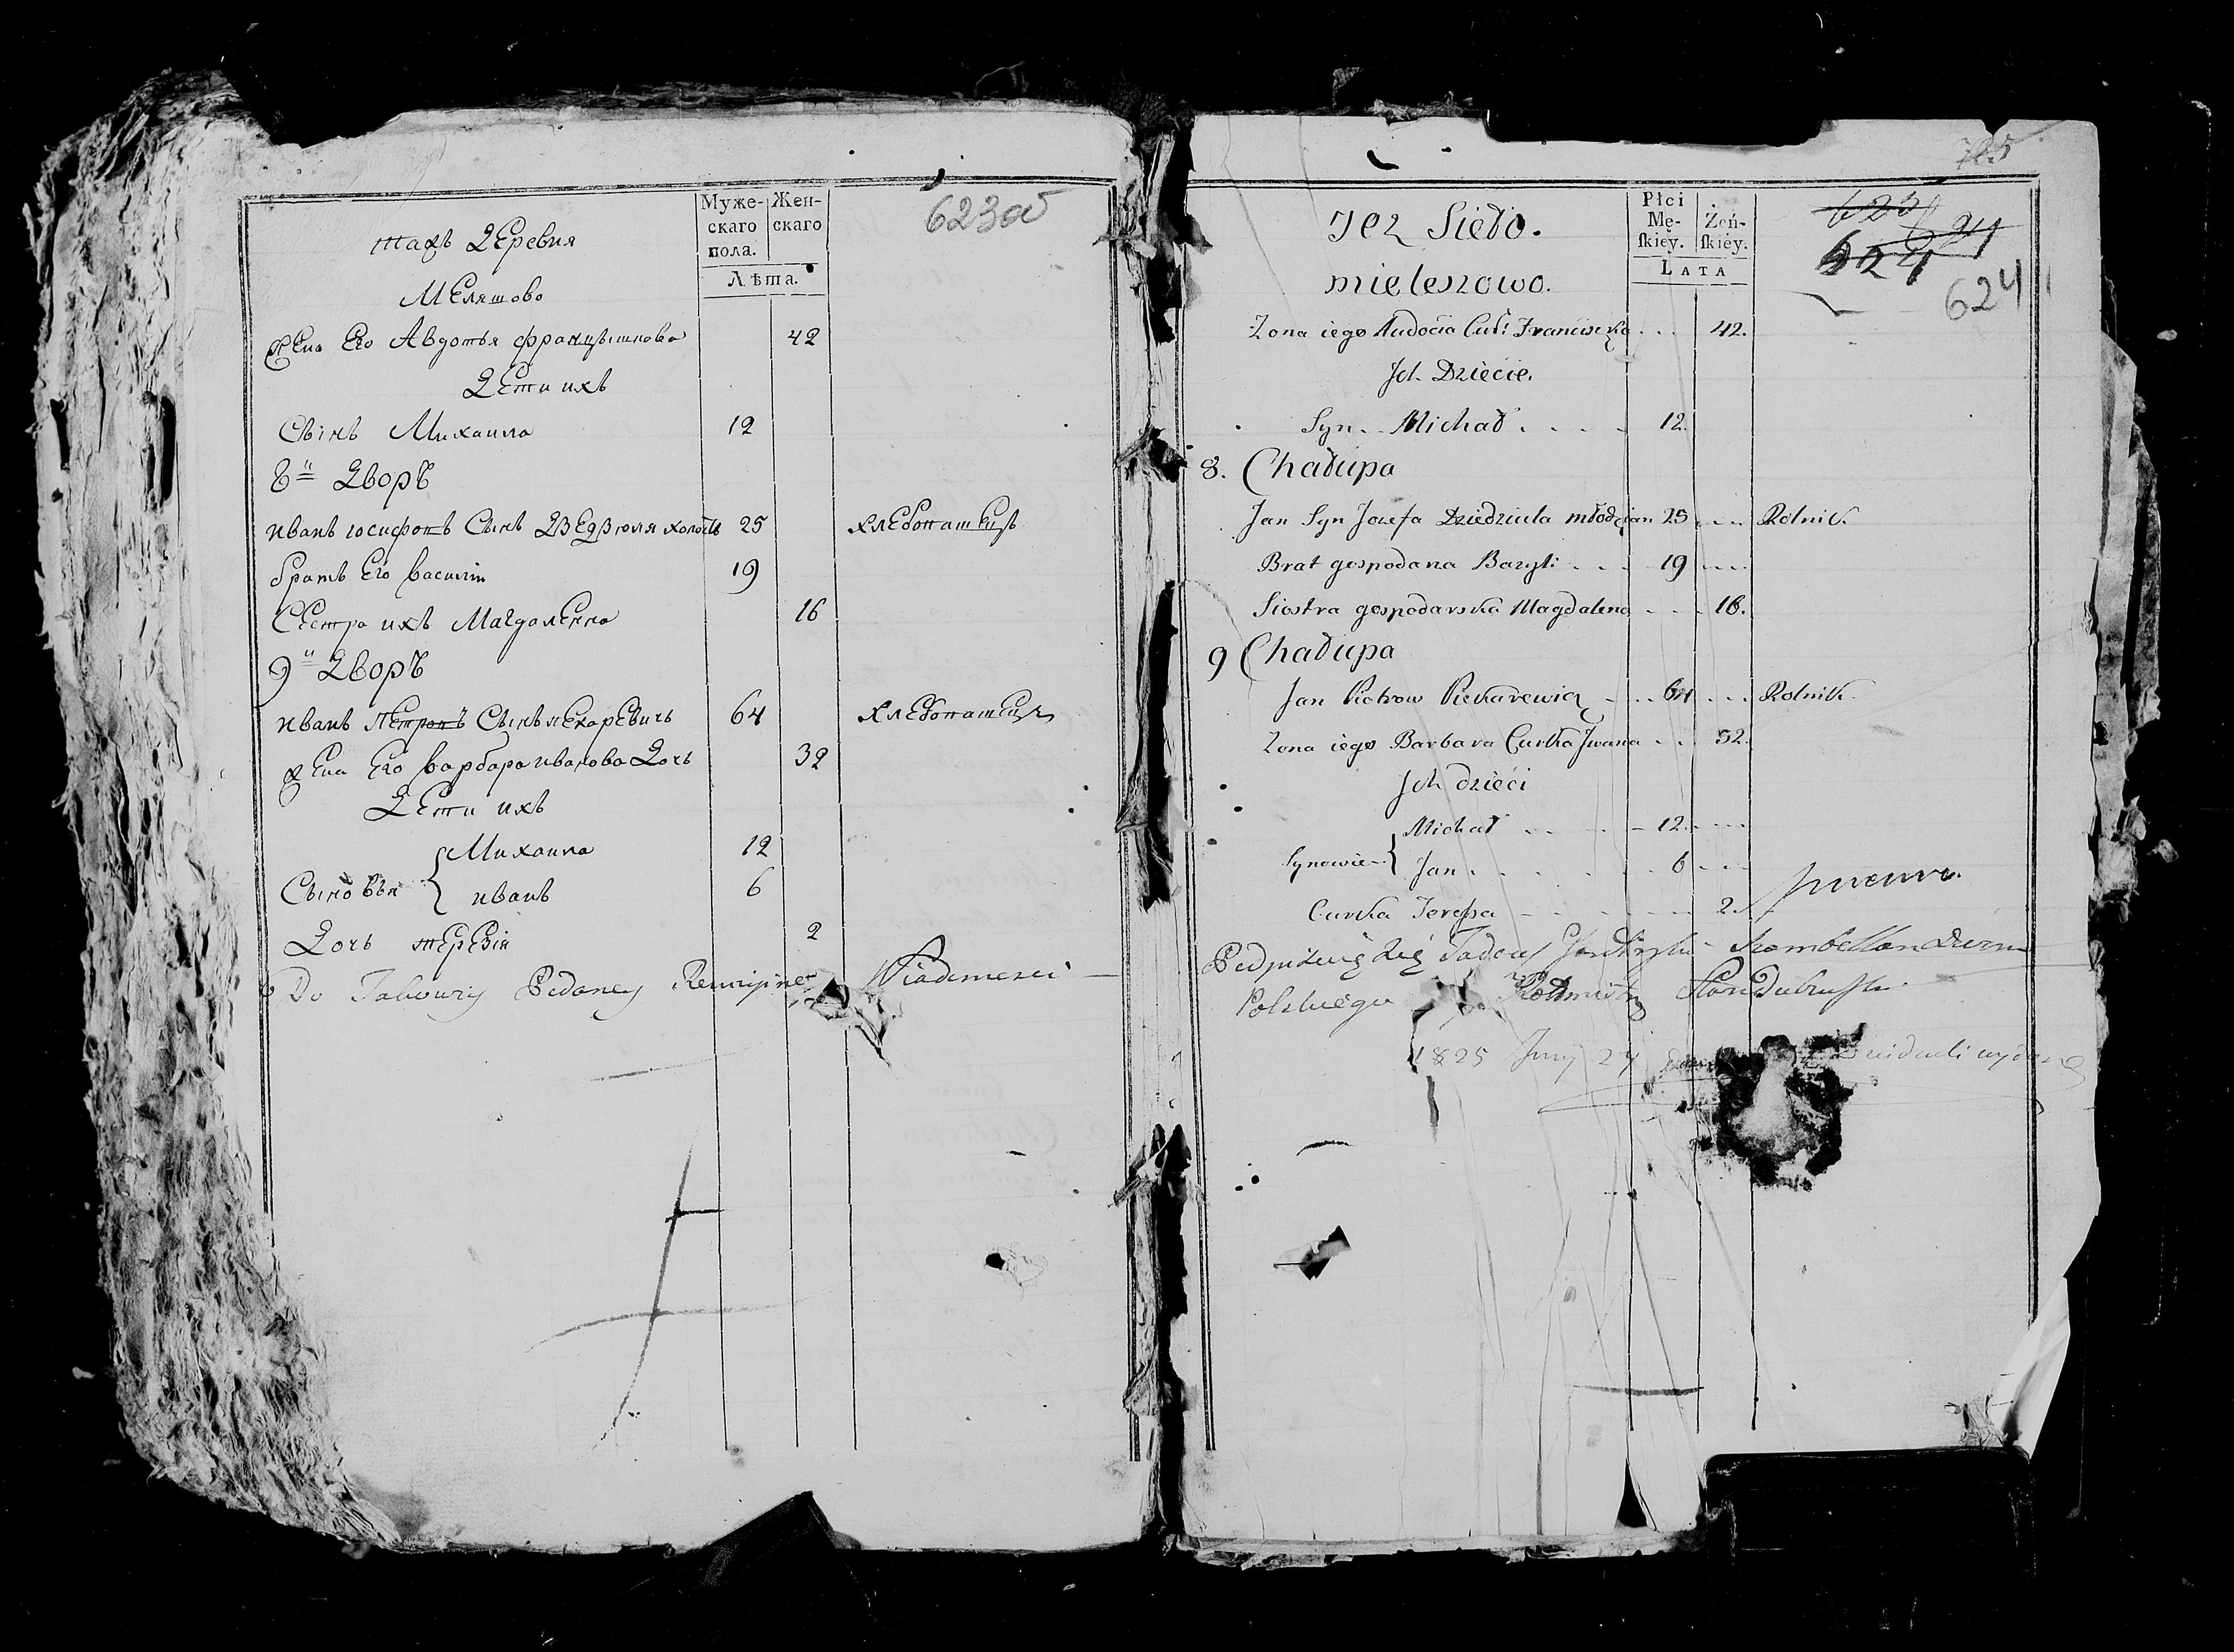 Муже-
скаго
пола.
Жен-
скаго
Лѣта.
623об
тажъ Деревня
Меляшово
Жена Его Авдотья францышкова
42
Дети ихъ
Сынъ Михаила 12
8й Дворъ
иванъ иосифовъ Сынъ Дзедзюля холостъ 25 хлебопашецъ
братъ Его василiи 19
Сестра ихъ Магдаленна 16
9й Дворъ
иванъ петровъ Сынъ пекаревичь 64 хлебопашецъ
жена Его варбара иванова Дочь 32
Дети ихъ
Сыновья
Михаила 12
иванъ 6
Дочь терезiя 2
Do Takowey Podaney Wiadomosci
705
Płci
Mę-
skiey.
Żeń-
skiey.
LATA
624
624
Tez Sieło.
mieleszowo.
Zona iego Audocia Cur: Franciszka 42.
Ich Dziecie.
Syn Michał 12.
8. Chałupa
Jan Syn Jozefa Dziedziula młodzian 25 Rolnik
Brat gospodara Bazyli 19
Siostra gospodarska Magdalena 16.
9 Chałupa
Jan Piotrow Piekarewicz 64 Rolnik
Zona iego Barbara Curka Jwana 32.
Jch dzieci
Synowie
Michał 12.
Jan 6
Curka Teresa 2.
Podpisuię się Tadeusz Szambellan Dworu
Polskiego
1825 Juny 24